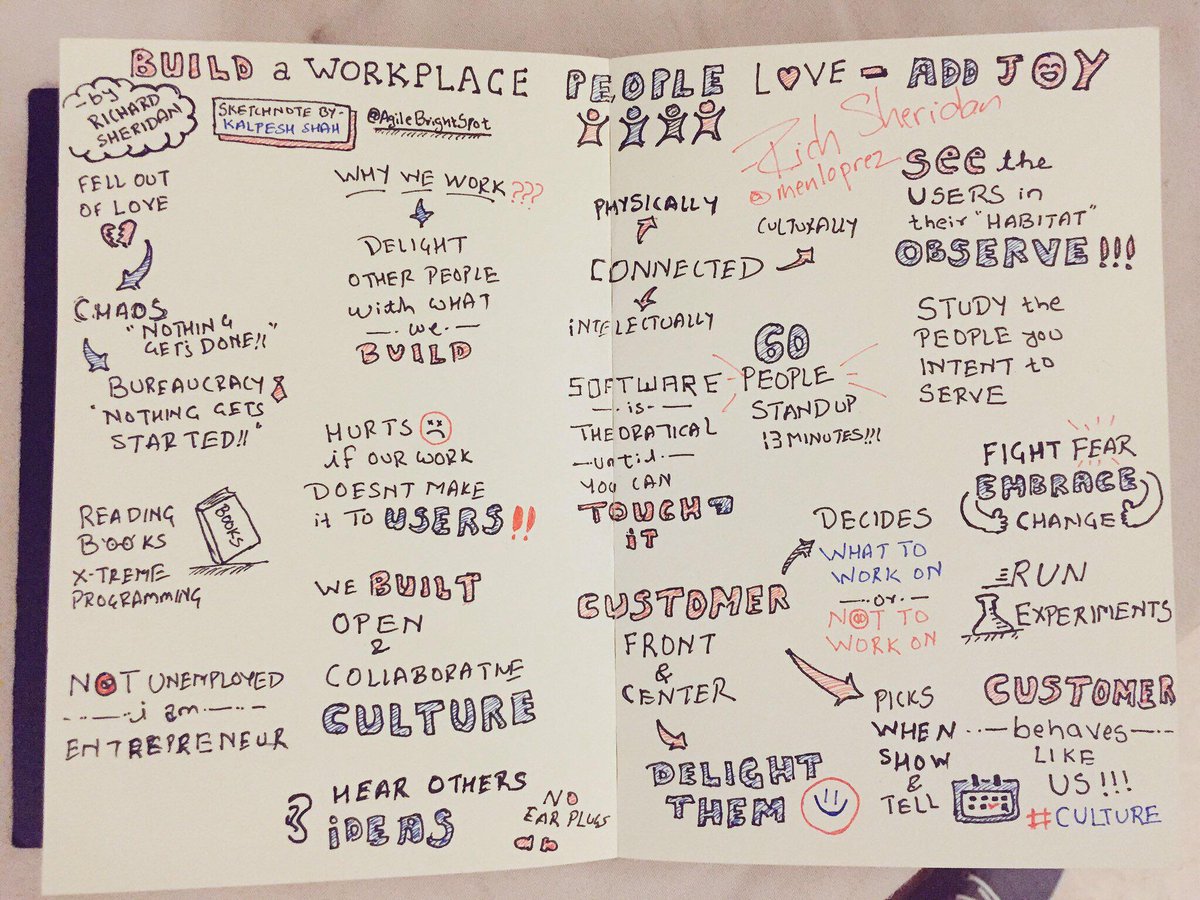 BUILD a WORKPLACE PEOPLE LOVE - ADD JOY
- by RICHARD SHERIDAN
SKETCHNOTE BY -
KALPESH SHAH
@AgileBrightSpot
Rich Sheridan
@menloprez
FELL OUT
OF LOVE
CHAOS
"NOTHING
GETS DONE!!"
BUREAUCRACY
"NOTHING GETS
STARTED!!"
READING
BOOKS
X-TREME
PROGRAMMING
BOOKS
NOT UNEMPLOYED
i am
ENTREPRENEUR
WHY WE WORK???
DELIGHT
OTHER PEOPLE
with WHAT
we
BUILD
HURTS
if OUR WORK
DOESNT MAKE
it TO USERS!!
WE BUILT
OPEN
&
COLLABORATIVE
CULTURE
HEAR OTHERS
iDEAS
NO
EAR PLUGS
PHYSICALLY
CULTURALLY
CONNECTED
iNTELECTUALLY
SOFTWARE
is
THEORATICAL
until
YOU CAN
TOUCH
iT
60
PEOPLE
STANDUP
13 MINUTES!!!
CUSTOMER
FRONT
&
CENTER
DELIGHT
THEM
DECIDES
WHAT TO
WORK ON
or
NOT TO
WORK ON
PICKS
WHEN
SHOW
&
TELL
SEE the
USERS in
their "HABITAT"
OBSERVE!!!
STUDY the
PEOPLE you
INTENT to
SERVE
FIGHT FEAR
EMBRACE
CHANGE
RUN
EXPERIMENTS
CUSTOMER
behaves
LIKE
US!!!
#CULTURE